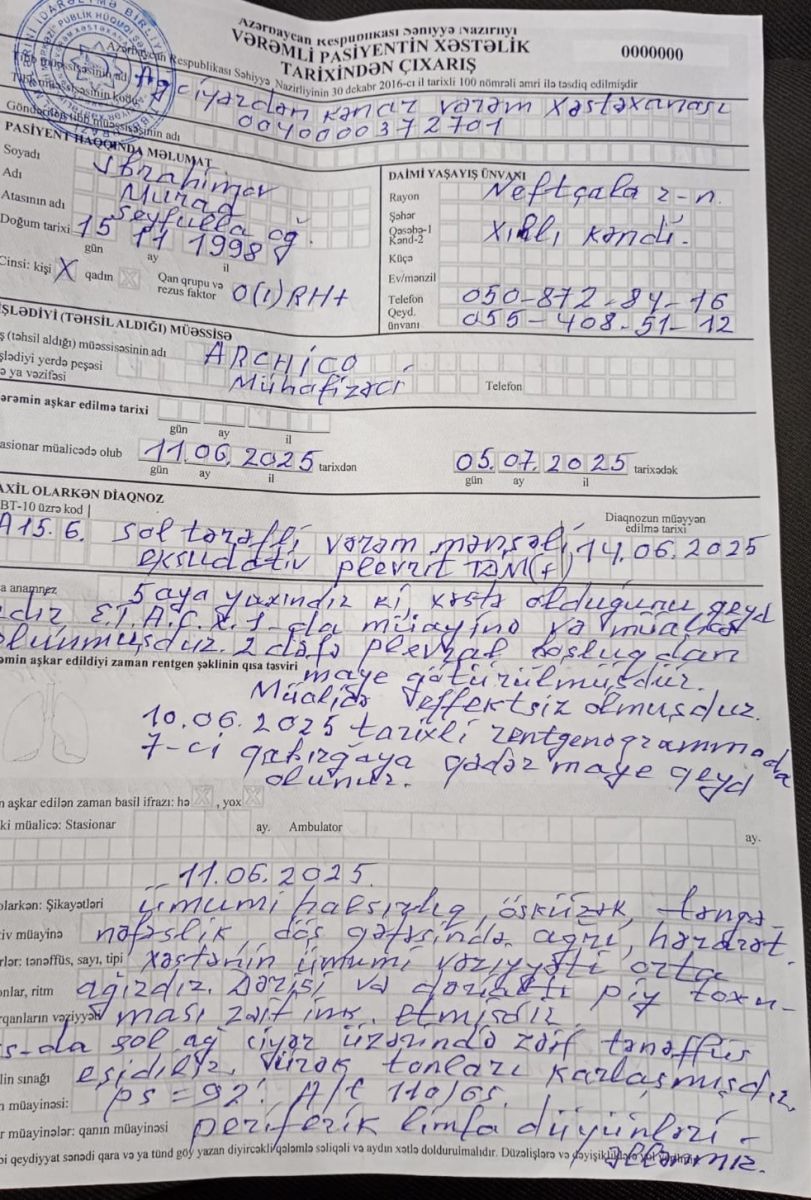 Azərbaycan Respublikası Səhiyyə Nazirliyi
VƏRƏMLİ PASİYENTİN XƏSTƏLİK
TARİXİNDƏN ÇIXARIŞ
0000000
Azərbaycan Respublikası Səhiyyə Nazirliyinin 30 dekabr 2016-cı il tarixli 100 nömrəli əmri ilə təsdiq edilmişdir
Tibb müəssisəsinin adı Ağciyərdən kənar vərəm xəstəxanası
Tibb müəssisəsinin kodu 0040000372701
Göndərilən tibb müəssisəsinin adı
PASİYENT HAQQINDA MƏLUMAT
Soyadı İbrahimov
Adı Murad
Atasının adı Seyfulla oğ.
Doğum tarixi 15 11 1998
gün ay il
Cinsi: kişi X qadın
Qan qrupu və rezus faktor O(I) RH+
DAİMİ YAŞAYIŞ ÜNVANI
Rayon Neftçala r-n.
Şəhər
Qəsəbə-1
Kənd-2 Xıllı kəndi.
Küçə
Ev/mənzil
Telefon 050-872-84-16
Qeyd. ünvanı 055-408-51-12
İŞLƏDİYİ (TƏHSİL ALDIĞI) MÜƏSSİSƏ
ş (təhsil aldığı) müəssisəsinin adı ARCHİCO
şlədiyi yerdə peşəsi
ə ya vəzifəsi Mühafizəçi
Telefon
ərəmin aşkar edilmə tarixi
gün ay il
asionar müalicədə olub 11.06.2025 tarixdən 05.07.2025 tarixədək
gün ay il gün ay il
AXİL OLARKƏN DİAQNOZ
BT-10 üzrə kod
Diaqnozun müəyyən edilmə tarixi
A15.6. Sol tərəfli vərəm mənşəli, 14.06.2025
eksudativ plevrit TBM(+)
a anamnez 5 aya yaxındır ki, xəstə olduğunu qeyd
edir. E.T.A.C.X.1-da müayinə və müalicə
olunmuşdur. 2 dəfə plevral boşluqdan
əmin aşkar edildiyi zaman rentgen şəklinin qısa təsviri maye götürülmüşdür.
Müalicə effektsiz olmuşdur.
10.06.2025 tarixli rentgenogrammada
7-ci qabırğaya qədər maye qeyd
olunur.
n aşkar edilən zaman basil ifrazı: hə , yox
ki müalicə: Stasionar ay. Ambulator ay.
11.06.2025.
olarkən: Şikayətləri ümumi halsızlıq, öskürək, təngə-
iv müayinə nəfəslik, döş qəfəsində ağrı, hərarət.
rlər: tənəffüs, sayı, tipi xəstənin ümumi vəziyyəti orta
onlar, ritm ağırdır. Dərisi və dərialtı piy toxu-
rqanların vəziyyəti ması zəif ink. etmişdir
s-da sol ağ ciyər üzərində zəif tənəffüs
lin sınağı eşidilir, ürək tonları karlaşmışdır,
n müayinəsi: ps=92'. A/t 110/65.
r müayinələr: qanın müayinəsi periferik limfa düyünləri-
bi qeydiyyat sənədi qara və ya tünd göy yazan diyircəkli qələmlə səliqəli və aydın xətlə doldurulmalıdır. Düzəlişlərə və dəyişikliklərə